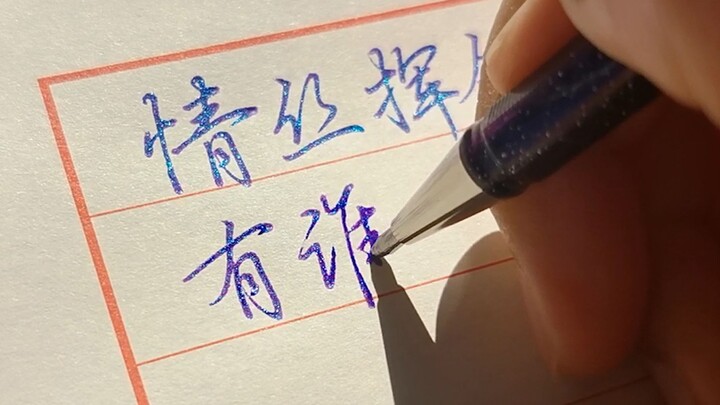 情丝挥
有谁